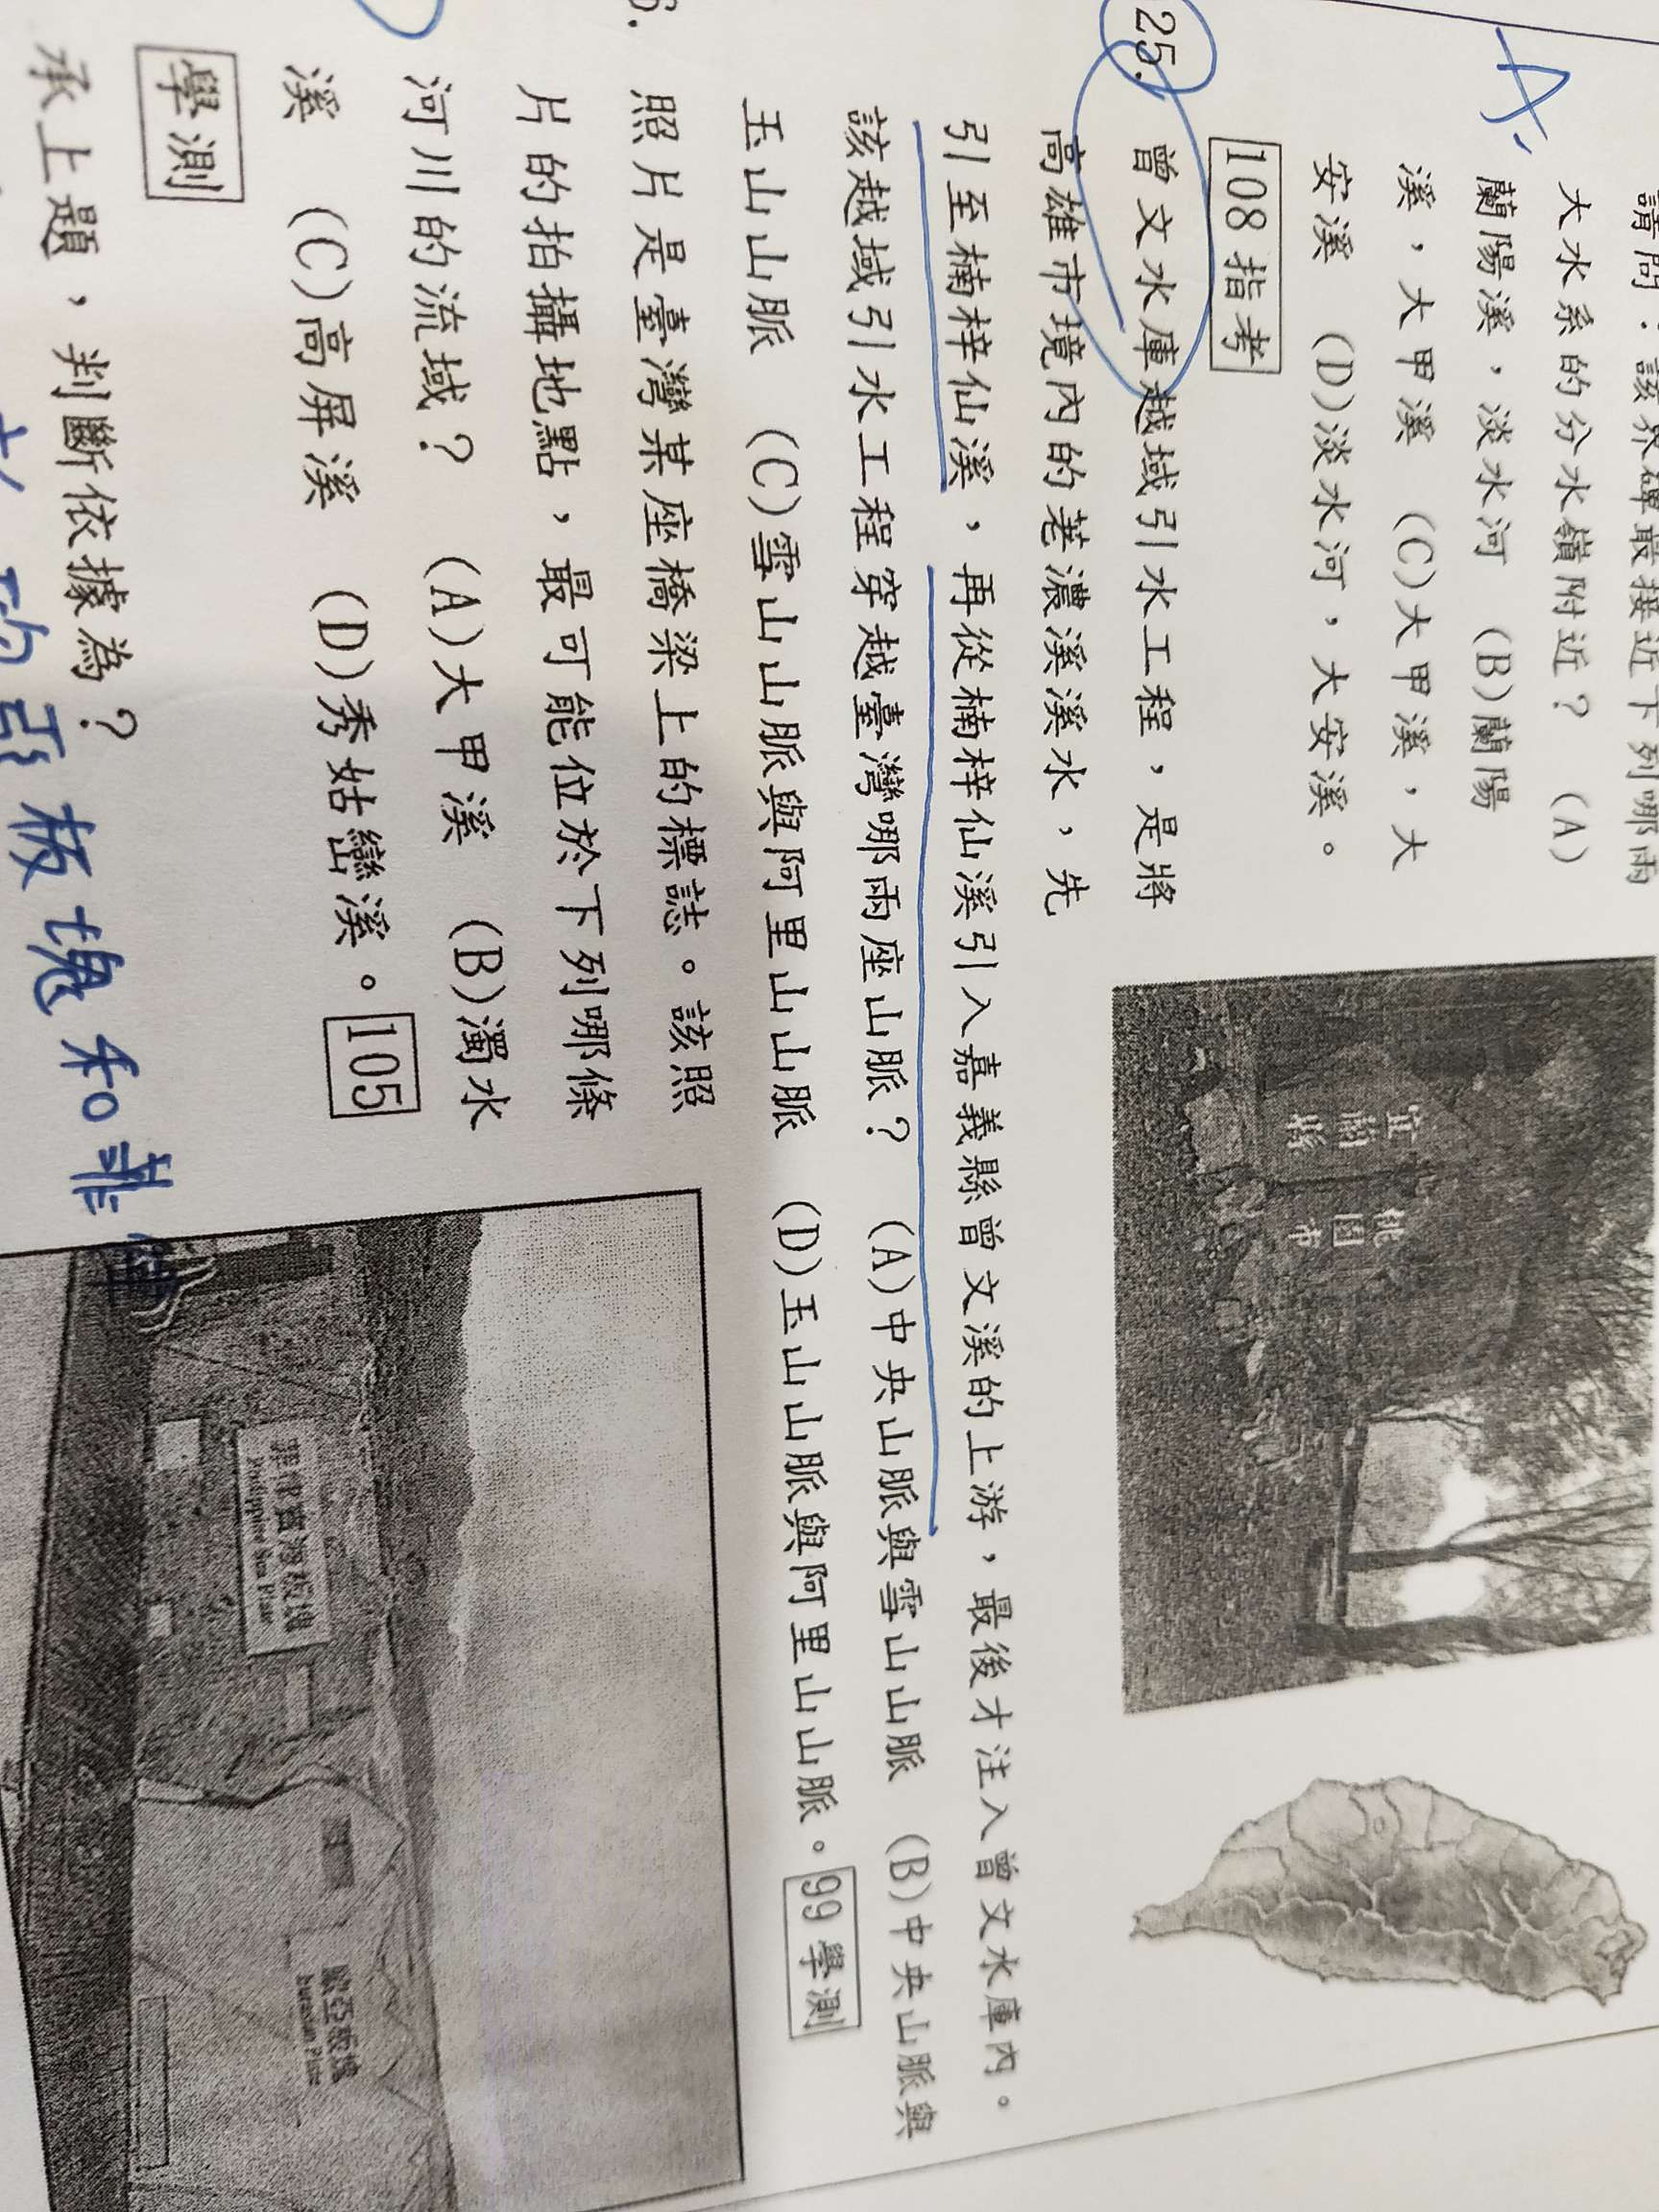 請問：該界碑最接近下列哪兩
大水系的分水嶺附近？ (A)
蘭陽溪，淡水河 (B)蘭陽
溪，大甲溪 (C)大甲溪，大
安溪 (D)淡水河，大安溪。
108指考
宜蘭縣
桃園市
25. 曾文水庫越域引水工程，是將
高雄市境內的荖濃溪溪水，先
引至楠梓仙溪，再從楠梓仙溪引入嘉義縣曾文溪的上游，最後才注入曾文水庫內。
該越域引水工程穿越臺灣哪兩座山脈？ (A)中央山脈與雪山山脈 (B)中央山脈與
玉山山脈 (C)雪山山脈與阿里山山脈 (D)玉山山脈與阿里山山脈。99學測
6. 照片是臺灣某座橋梁上的標誌。該照
片的拍攝地點，最可能位於下列哪條
河川的流域？ (A)大甲溪 (B)濁水
溪 (C)高屏溪 (D)秀姑巒溪。105
學測
菲律賓海板塊
Philippine Sea Plate
歐亞板塊
Eurasian Plate
承上題，判斷依據為？
板塊和菲律